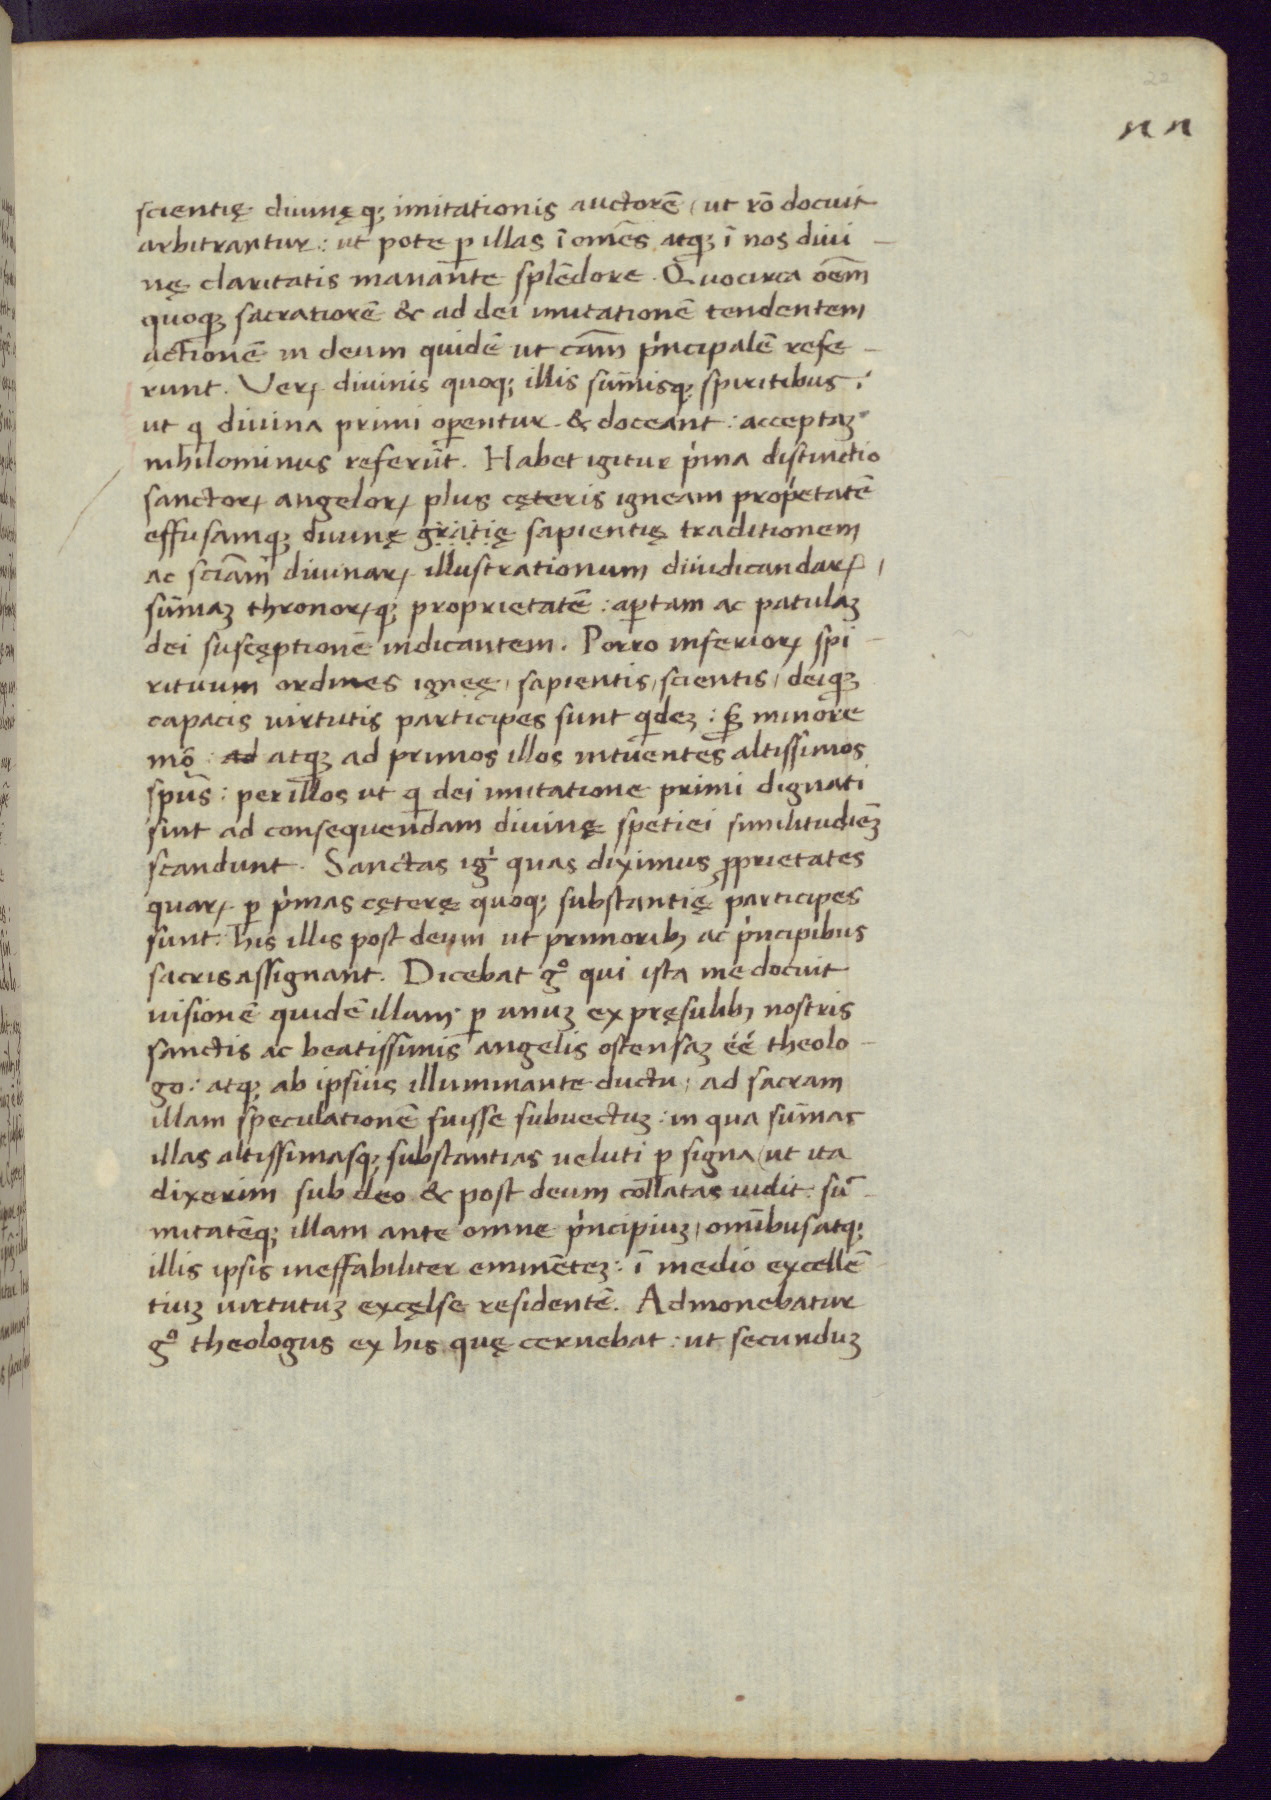 22
nn
scientię diuinęq; imitationis auctorē, ut rō docuit
arbitrantur: ut pote ꝑ illas ī omēs atqꝫ ī nos diui-
nę claritatis manante splēdore. Quocirca oēm
quoqꝫ sacratiorē & ad dei imitationē tendentem
actionē in deum quidē ut cām pͥncipalē refe-
runt. Veꝝ diuinis quoq; illis sūmisq; spiritibus:
ut q diuina primi operentur & doceant: acceptaꝫ
nihilominus referūt. Habet igitur pͥma distinctio
sanctoꝝ angeloꝝ plus cęteris igneam propͥetatē
effusamqꝫ diuinę gratię sapientię traditionem
ac sciam diuinaꝝ illustrationum diiudicandaꝝ,
sūmaꝫ thronoꝝqꝫ proprietatē: aꝑtam ac patulaꝫ
dei suscęptionē indicantem. Porro inferioꝝ spi-
rituum ordines ignęę, sapientis, scientis, deiqꝫ
capacis uirtutis participes sunt qdeꝫ: sꝫ minore
mō: ad atqꝫ ad primos illos intuentes altissimos
spūs: per illos ut q dei imitatione primi dignati
sint ad consequendam diuinę spetiei similitudīeꝫ
scandunt. Sanctas igͥ quas diximus ꝓprietates
quaꝝ ꝑ pͥmas cęterę quoq; substantię participes
sunt: his illis post deum ut primoribꝫ ac pͥncipibus
sacris assignant. Dicebat gͦ qui ista me docuit
uisionē quidē illam ꝑ unuꝫ ex pręsulibꝫ nostris
sanctis ac beatissimis angelis ostensaꝫ éé theolo-
go: atqꝫ ab ipsius illuminante ductu, ad sacram
illam speculationē fuisse subuectuꝫ: in qua sūmas
illas altissimasq; substantias ueluti ꝑ signa (ut ita
dixerim sub deo & post deum collatas uidit: sū-
mitatēq; illam ante omne pͥncipiuꝫ, omībus atq;
illis ipsis ineffabiliter eminēteꝫ: ī medio excellē-
tiuꝫ uirtutuꝫ excęlse residentē. Admonebatur
gͦ theologus ex his quę cernebat: ut secunduꝫ